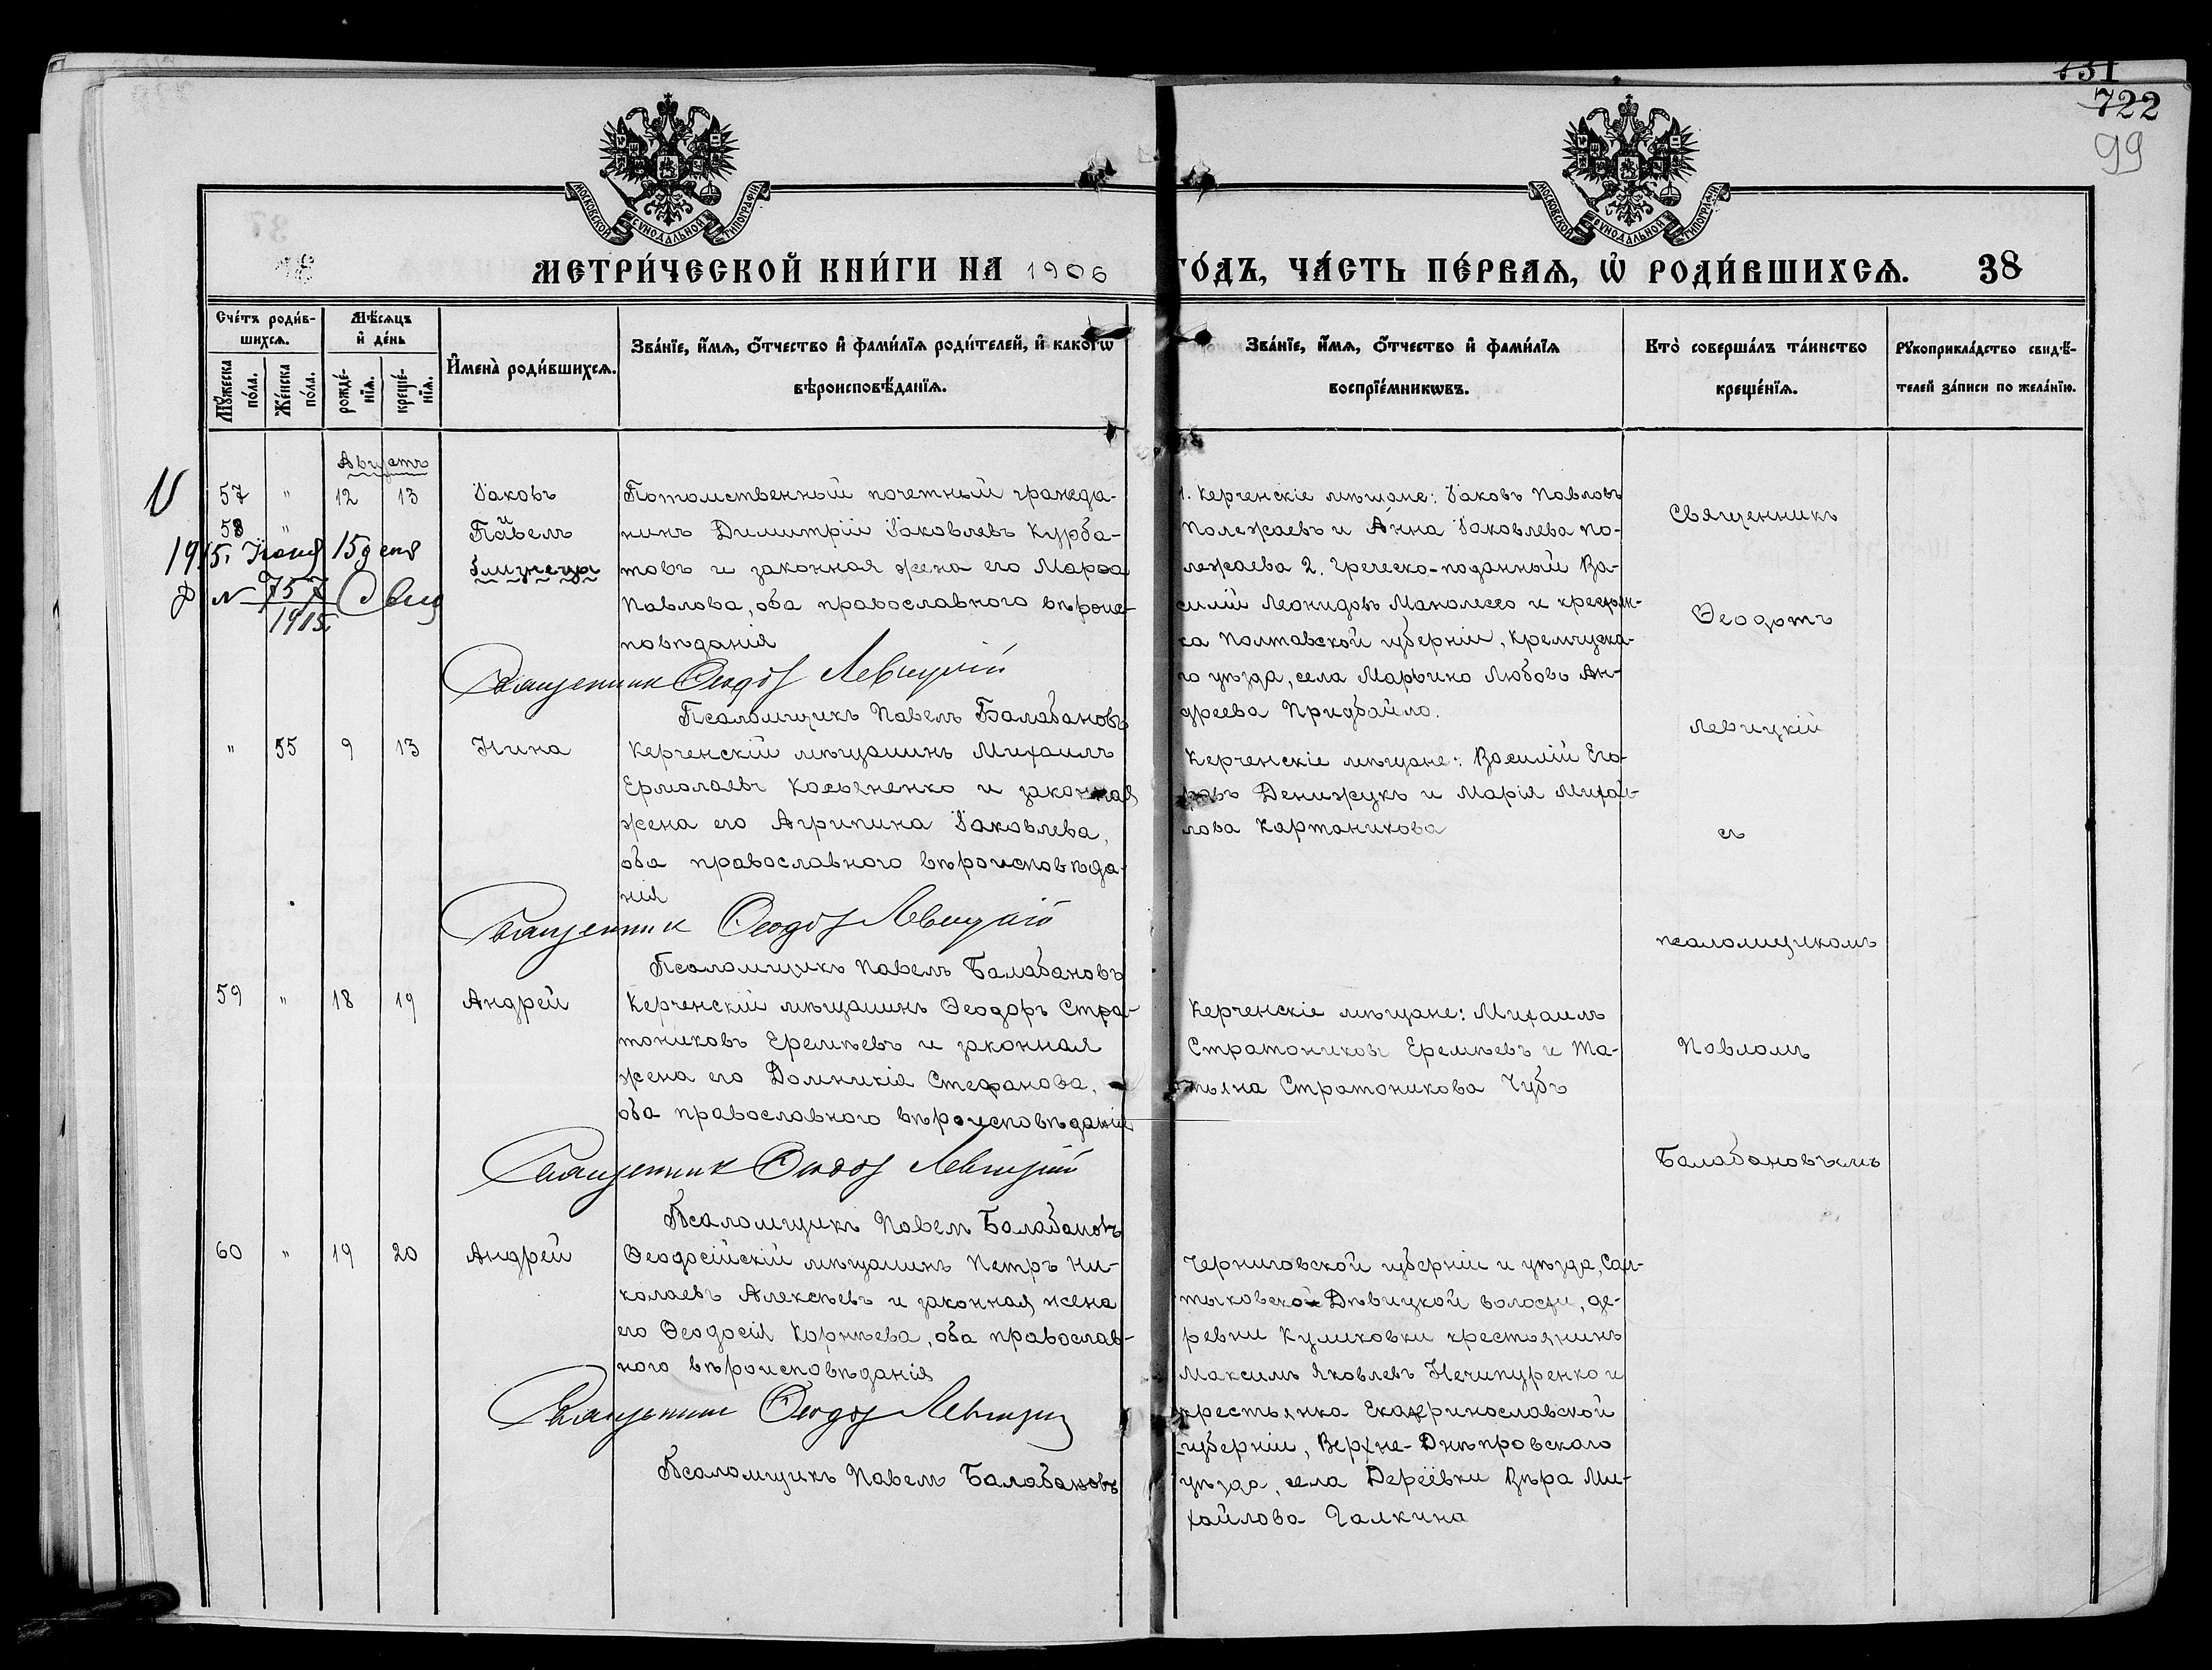 731
722
99
МОСКОВСКОЙ СѴНОДАЛЬНОЙ ТИПОГРАФІИ
МОСКОВСКОЙ СѴНОДАЛЬНОЙ ТИПОГРАФІИ
МЕТРИ́ЧЕСКОЙ КНИ́ГИ НА 1906 ГО́ДЪ, ЧА́СТЬ ПЕ́РВАѦ, Ѽ РОДИ́ВШИХСѦ. 38
Сче́тъ роди́в-
шихсѧ.
Мꙋ́жеска по́ла.
Же́нска по́ла.
Мѣ́сѧцъ
и҆ де́нь
рожде́-
нїѧ.
креще́-
нїѧ.
И҆мена̀ роди́вшихсѧ.
Зва́нїе, и҆́мѧ, ѻ҆́тчество и҆ фами́лїѧ роди́телей, и҆ како́гѡ
вѣроисповѣ́данїѧ.
Зва́нїе, и҆́мѧ, ѻ҆́тчество и҆ фами́лїѧ
воспрїе́мникѡвъ.
Кто̀ соверша́лъ та́инство
креще́нїѧ.
Рꙋкоприкла́дство свидѣ́-
телей за́писи по жела́нїю.
Августъ
57 " 12 13 Іаковъ
58 "
Павелъ
близнецы
1915. Іюня 15 дня
№ 757
1915.
Потомственный почетный гражда-
нинъ Димитрій Іаковлевъ Курба-
товъ и законная жена его Марѳа
Павлова, оба православнаго вѣроис-
повѣданія
Священникъ Ѳеодотъ Левицкій
Псаломщикъ Павелъ Балабановъ
1. Керченскіе мѣщане: Іаковъ Павловъ
Полежаевъ и Анна Іаковлева По-
лежаева 2. Греческо-поданный Ва-
силій Леонидовъ Манолессо и крестьян-
ка Полтавской губерніи, Кремчугска-
го уѣзда, села Марьино Любовь Ан-
дреева Придбайло.
" 55 9 13 Нина
Керченскій мѣщанинъ Михаилъ
Ермолаевъ Косьяненко и законная
жена его Агрипина Іаковлева,
оба православнаго вѣроисповѣда-
нія
Священникъ Ѳеодотъ Левицкій
Псаломщикъ Павелъ Балабановъ
Керченскіе мѣщане: Василій Его-
ровъ Денижукъ и Марія Михай-
лова Картаникова
59 " 18 19 Андрей
Керченскій мѣщанинъ Ѳеодоръ Стра-
тониковъ Еремѣевъ и законная
жена его Домникія Стефанова,
оба православнаго вѣроисповѣданія
Священникъ Ѳеодотъ Левицкій
Псаломщикъ Павелъ Балабановъ
Керченскіе мѣщане: Михаилъ
Стратониковъ Еремѣевъ и Та-
тьяна Стратоникова Чубъ
60 " 19 20 Андрей
Ѳеодосійскій мѣщанинъ Петръ Ни-
колаевъ Алексѣевъ и законная жена
его Ѳеодосія Корнѣева, оба православ-
наго вѣроисповѣданія
Священникъ Ѳеодотъ Левицкій
Псаломщикъ Павелъ Балабановъ
Черниговской губерніи и уѣзда, Сал-
тыковской Дѣвицкой волости, де-
ревни Куликовки крестьянинъ
Максимъ Яковлевъ Нечипуренко и
крестьянка Екатеринославской
губерніи, Верхне-Днѣпровскаго
уѣзда, села Дереівки Вѣра Ми-
хайлова Галкина
Священникъ
Ѳеодотъ
Левицкій
съ
псаломщикомъ
Павломъ
Балабановымъ